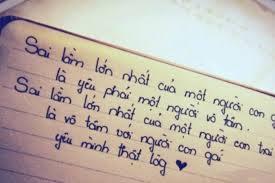 Sai lầm lớn nhất của một người con g
là yêu phải một người vô tâm.
Sai lầm lớn nhất của một người con trai
là vô tâm với người con gái
yêu mình thật lòg ♥